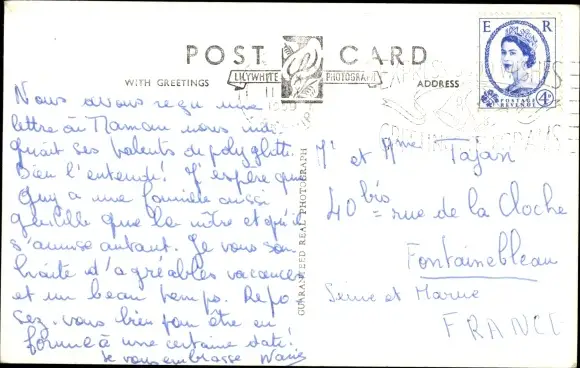 POST CARD
WITH GREETINGS
LILYWHITE PHOTOGRAPH
ADDRESS
E R
POSTAGE
REVENUE
4D
Nous avons reçu une
lettre où Maman nous indi
quait ses talents de polyglotte.
Bien l'entendu! J'espère que
Guy a une famille aussi
gentille que la nôtre et qu'il
s'amuse autant. Je vous sou
haite d'agréables vacances
et un beau temps. Repo
sez-vous bien pour être en
forme à une certaine date!
Je vous embrasse
GUARANTEED REAL PHOTOGRAPH
Mr et Mme Tajan
40 bis rue de la Cloche
Fontainebleau
Seine et Marne
FRANCE